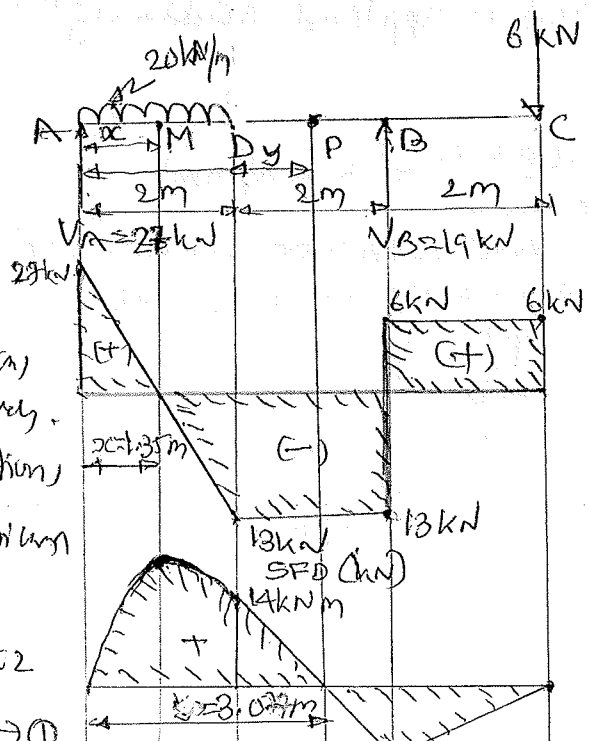 6 kN
20 kN/m
A x M D y P B C
2m 2m 2m
VA = 27 kN VB = 19 kN
27 kN
6kN 6kN
(+) (+)
x=1.35m
(-)
13kN 13kN
SFD (kN)
14kNm
+